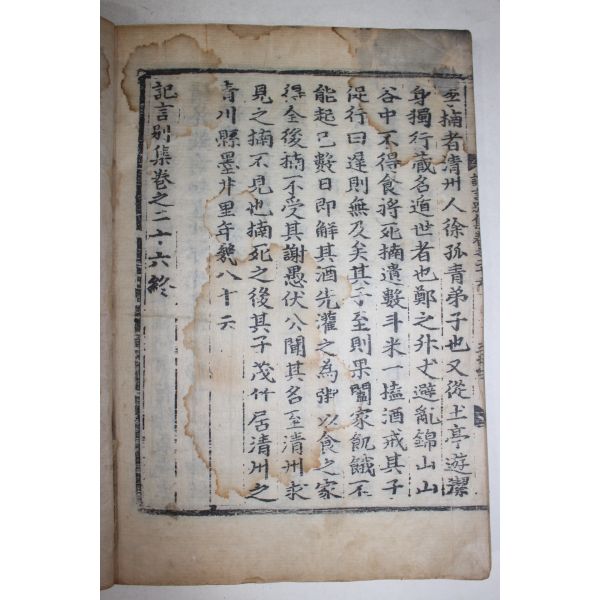 至擶者清州人徐孤青弟子也又從土亭遊潔
身獨行藏名遁世者也鄭之升丈避亂錦山山
谷中不得食將死擶遺數斗米一壒酒戒其子
促行曰遲則無及矣其子至則果闔家飢餓不
能起已數日即解其酒先灌之為粥以食之家
得全後擶不受其謝愚伏公聞其名至清州求
見之擶不見也擶死之後其子茂竹居清州之
青川縣墨井里年幾八十六
記言別集卷之二十六終